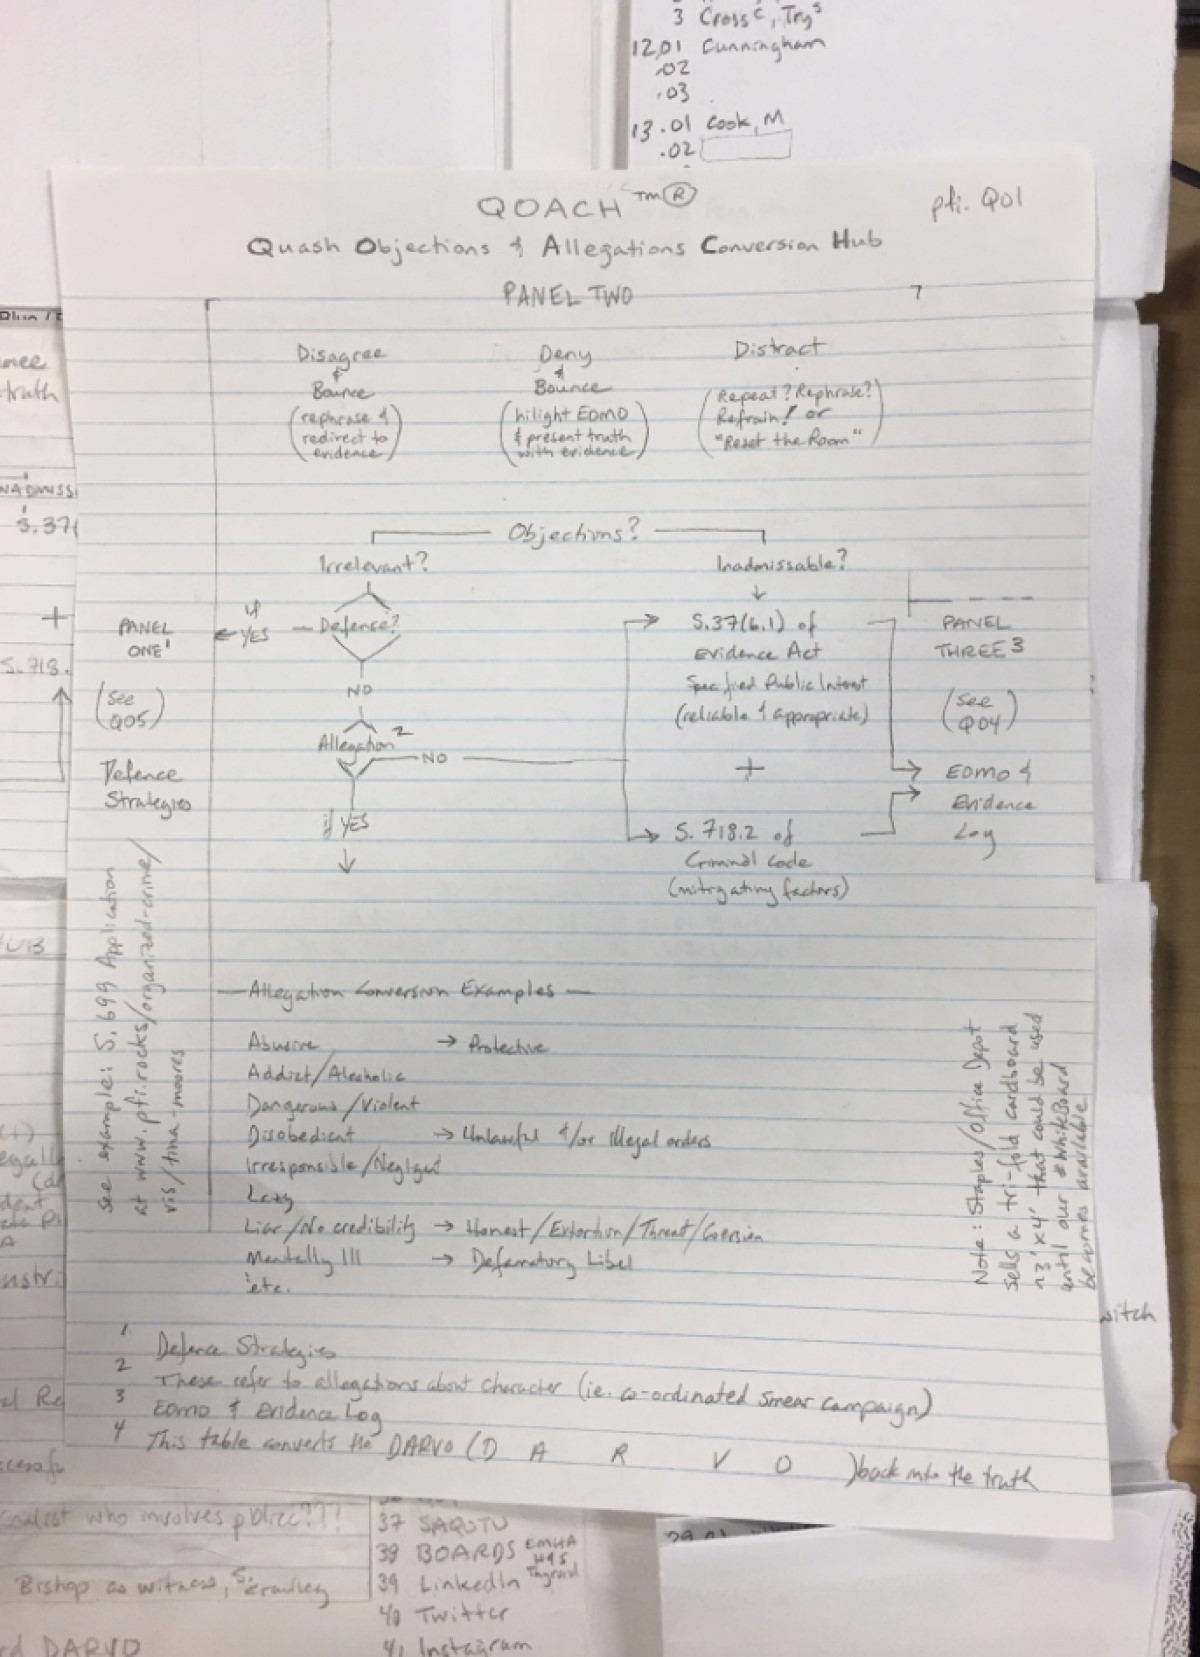 3 Cross C, Try s
12.01 Cunningham
.02
.03
13.01 Cook, M
.02
QOACH TM ®
pfi. Q01
Quash Objections & Allegations Conversion Hub
PANEL TWO
Disagree
&
Bounce
(rephrase &
redirect to
evidence)
Deny
&
Bounce
(hilight EOMO
& present truth
with evidence)
Distract
(Repeat? Rephrase?
Refrain! or
"Reset the Room")
Objections?
Irrelevant?
Inadmissable?
Defense?
if
YES
NO
Allegation 2
NO
if YES
S.37(6.1) of
Evidence Act
Specified Public Interest
(reliable & appropriate)
+
S. 718.2 of
Criminal Code
(mitigating factors)
PANEL
ONE 1
(see
Q05)
Defence
Strategies
PANEL
THREE 3
(see
Q04)
EOMO &
Evidence
Log
See example: S. 699 Application
at www.pfi.rocks/organized-crime/
vis/tina-moores
Allegation Conversion Examples
Abusive → Protective
Addict/Alcoholic
Dangerous/Violent
Disobedient → Unlawful &/or illegal orders
Irresponsible/Negligent
Lazy
Liar/No credibility → Honest/Extortion/Threat/Coersion
Mentally Ill → Defamatory Libel
etc.
Note: Staples/Office Depot
sells a tri-fold cardboard
~3'x4' that could be used
until our # WhiteBoard
becomes available
1 Defence Strategies
2 These refer to allegations about character (ie. co-ordinated smear campaign)
3 EOMO & Evidence Log
4 This table converts the DARVO (D A R V O ) back into the truth
truth
S.37(
+
S.718.
witch
who involves public???
Bishop as witness, S. Crowley
DARVO
37 SAQOTU
38 BOARDS EMHA
39 LinkedIn
40 Twitter
41 Instagram